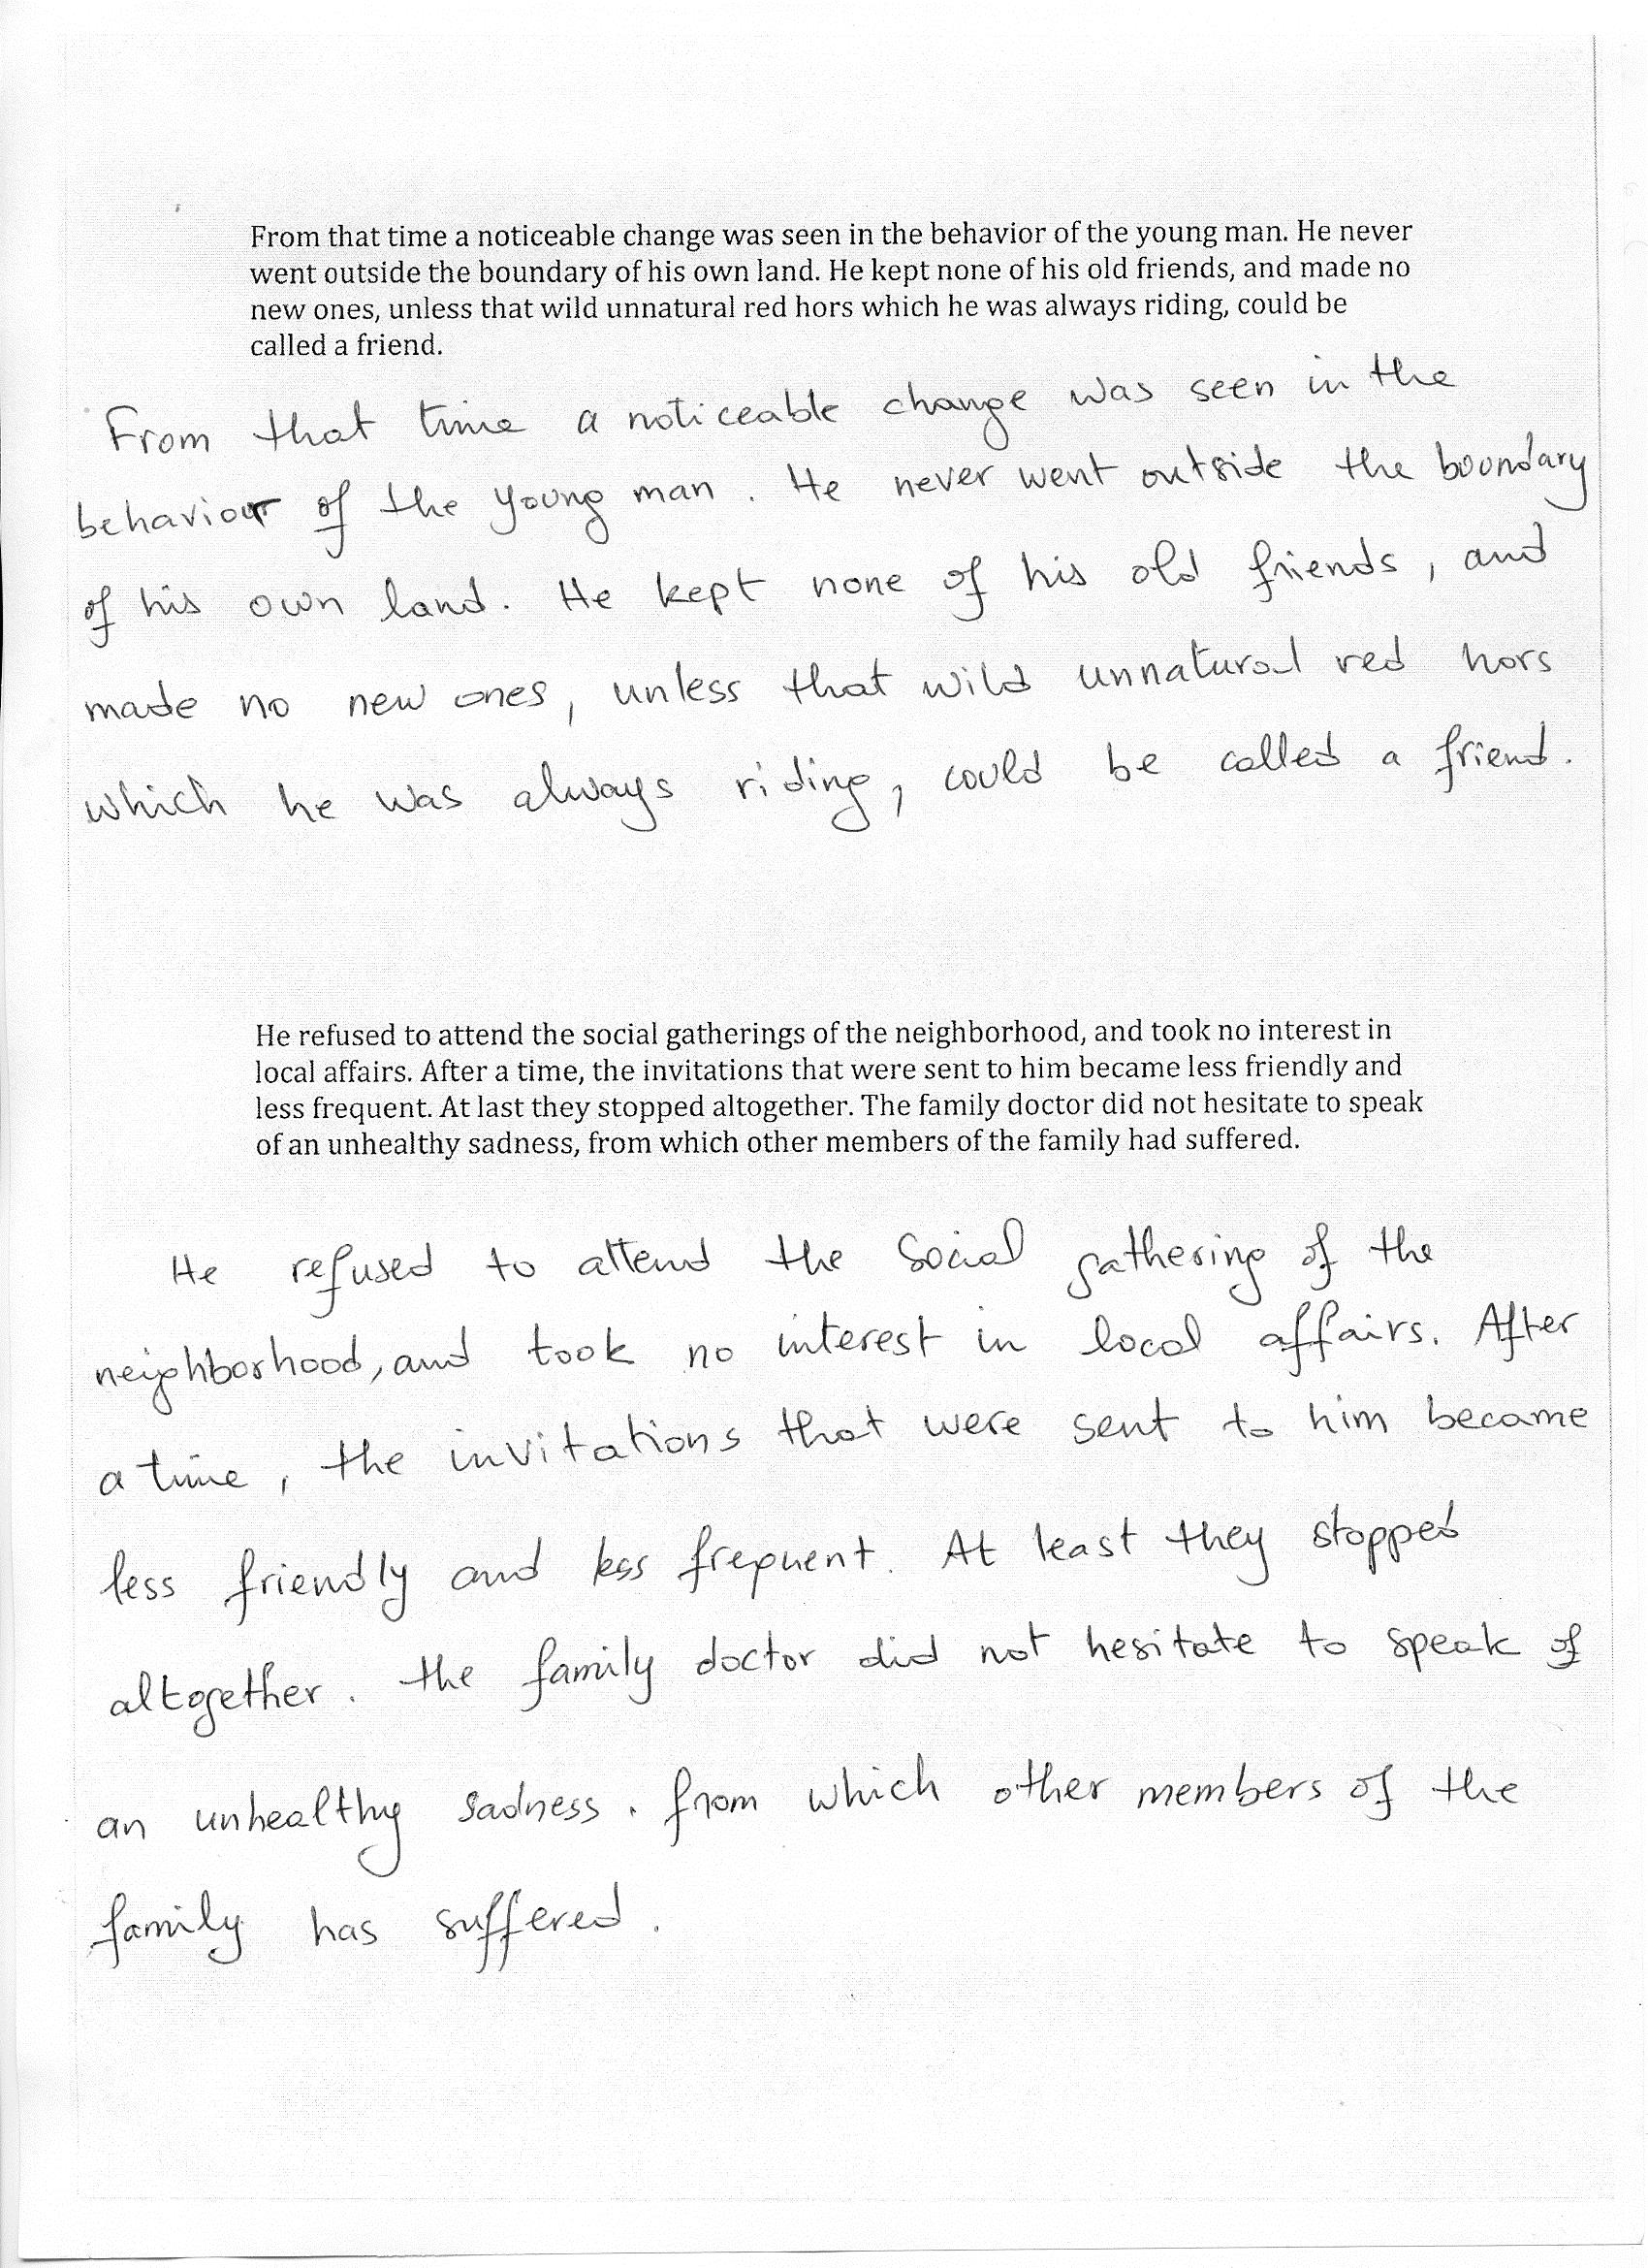 From that time a noticeable change was seen in the behavior of the young man. He never
went outside the boundary of his own land. He kept none of his old friends, and made no
new ones, unless that wild unnatural red hors which he was always riding, could be
called a friend.
From that time a noticeable change was seen in the
behaviour of the young man. He never went outside the boundary
of his own land. He kept none of his old friends, and
made no new ones, unless that wild unnatural red hors
which he was always riding, could be called a friend.
He refused to attend the social gatherings of the neighborhood, and took no interest in
local affairs. After a time, the invitations that were sent to him became less friendly and
less frequent. At last they stopped altogether. The family doctor did not hesitate to speak
of an unhealthy sadness, from which other members of the family had suffered.
He refused to attend the social gathering of the
neighborhood, and took no interest in local affairs. After
a time, the invitations that were sent to him became
less friendly and less frequent. At least they stopped
altogether. the family doctor did not hesitate to speak of
an unhealthy sadness. from which other members of the
family has suffered.